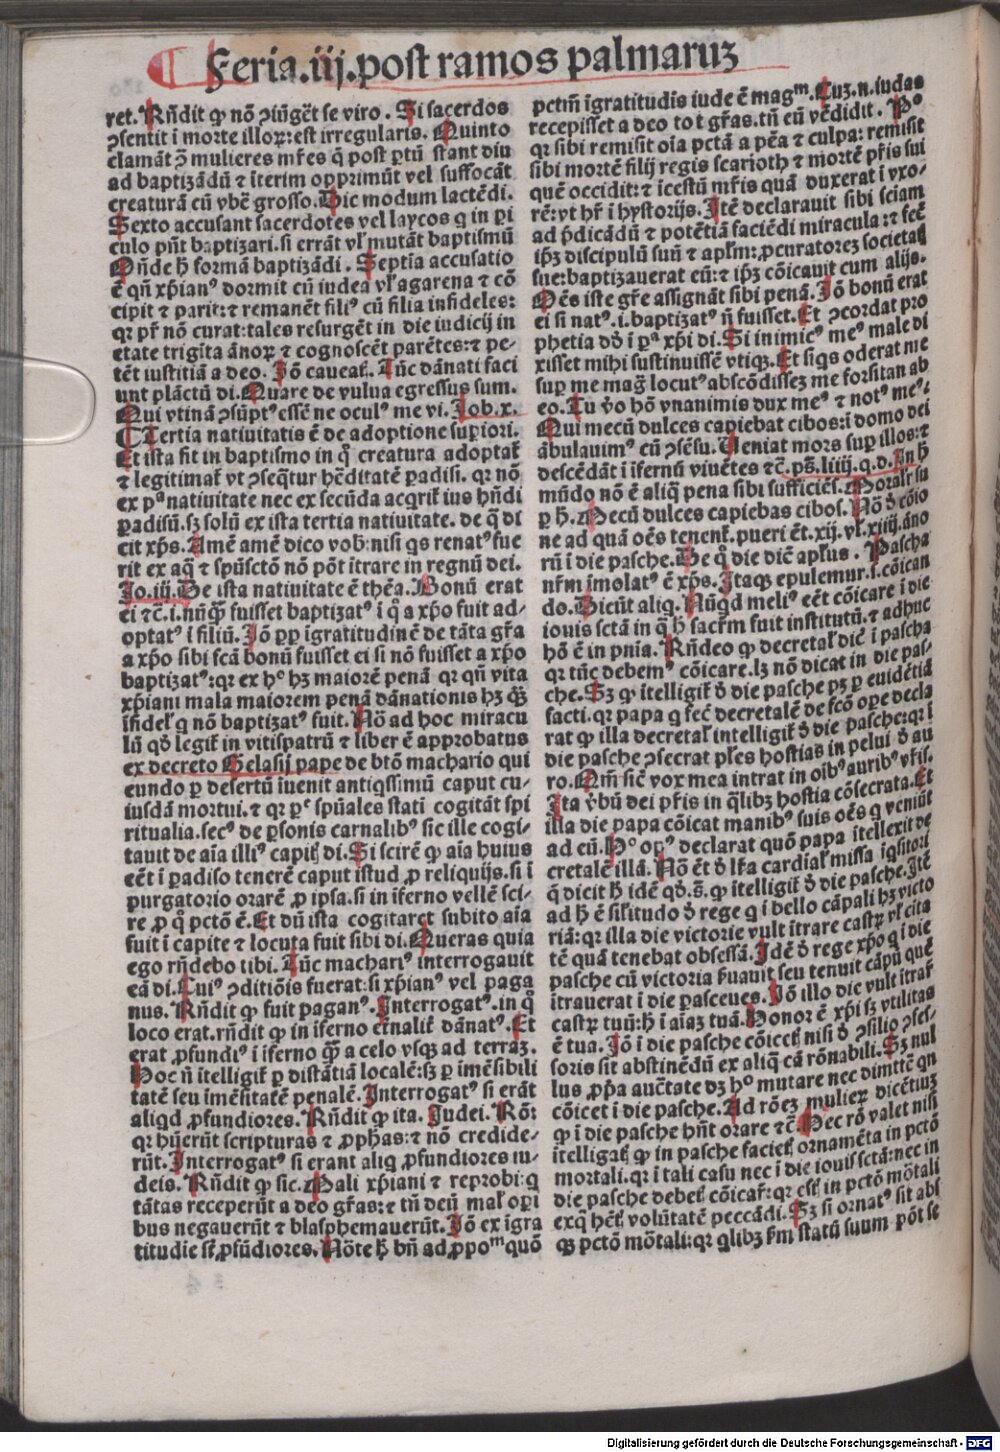 Feria.iij.post ramos palmaruʒ
ret. Rñdit ꝙ nõ ꝯiũgēt se viro. Si sacerdos
ꝯsentit ī morte illoꝝ: est irregularis. Quinto
clamāt ꝯ̃ mulieres mr̃es q̃ post ꝑtũ stant diu
ad baptizãdũ ⁊ īterim opprimũt vel suffocãt
creaturã cũ vbẽ grosso. Dic modum lactẽdi.
Sexto accusant sacerdotes vel laycos q in ꝑi
culo pñt baptizari. si errãt vł mutãt baptismũ
Onde h̃ formã baptizãdi. Septīa accusatio
ē qñ xp̃ianꝰ dormit cũ iudea vł agarena ⁊ cõ
cipit ⁊ parit: ⁊ remanẽt filiꝰ cũ filia infideles:
qꝛ pr̃ nõ curat: tales resurgẽt in die iudicij in
etate trigīta ãnoꝝ ⁊ cognoscẽt parẽtes: ⁊ pe-
tẽt iustitiã a deo. Jõ caueaƭ. Tũc dãnati faci
unt plãctũ di. Quare de vulua egressus sum.
Qui vtinã ꝯsũptꝰ essẽ ne oculꝰ me vi. Job.x.
¶ Tertia natiuitatis ẽ de adoptione superiori.
Et ista fit in baptismo in qͦ creatura adoptaƭ
⁊ legitimaƭ vt ꝯseqᷓtur h̃editatẽ padisi. qꝛ nõ
ex pᵃ natiuitate nec ex secũda acqriƭ ius hñdi
ꝑadisũ. sʒ solũ ex ista tertia natiuitate. de qͣ di
cit xp̃s. Amẽ amẽ dico vob: nisi qs renatꝰ fue
rit ex aq̃ ⁊ spũsctõ nõ põt ītrare in regnũ dei.
Jo.iij. De ista natiuitate ẽ thẽa. Bonũ erat
ei ⁊c̃. i. nũqͣ fuisset baptizatꝰ ī q̃ a xp̃o fuit ad-
optatꝰ ī filiũ. Jõ ꝓp īgratitudinẽ de tãta gr̃a
a xp̃o sibi fcã bonũ fuisset ei si nõ fuisset a xp̃o
baptizatꝰ: qꝛ ex hͦ hʒ maiorẽ penã qꝛ qñ vita
xp̃iani mala maiorem penã dãnationis hʒ qͣ
īfideƚ q nõ baptizatꝰ fuit. Nõ ad hoc miracu
lũ qð legiƭ in vitispatrũ ⁊ liber ẽ approbatus
ex decreto Gelasij pape de btõ machario qui
eundo ꝑ desertũ īuenit antiqssimũ caput cu-
iusdã mortui. ⁊ qꝛ ꝑᵉ spũales stati cogitãt spi
ritualia. secꝰ de ꝑsonis carnalibꝰ sic ille cogi-
tauit de aĩa illiꝰ capiƭ di. Si scirẽ ꝙ aĩa huius
eẽt ī ꝑadiso tenerẽ caput istud ꝓ reliquijs. si ī
purgatorio orarẽ ꝓ ipsa. si in īferno vellẽ sci-
re ꝓ qͦ pctõ ẽ. Et dũ ista cogitaret subito aĩa
fuit ī capite ⁊ locuta fuit sibi di. Queras quia
ego rñdebo tibi. Tũc machariꝰ interrogauit
eã di. Cuiꝰ ꝯditiõis fuerat: si xp̃ianꝰ vel paga
nus. Rñdit ꝙ fuit paganꝰ. Interrogatꝰ. in qͦ
loco erat. rñdit ꝙ in īferno etnaliƭ dãnatꝰ. Et
erat ꝓfundiꝰ ī īferno qͣ a celo vsqʒ ad terraʒ.
Hoc ñ ītelligiƭ ꝑ distãtiã localẽ: sʒ ꝑ imẽsibili
tatẽ seu īmẽsitatẽ penalẽ. Interrogatꝰ si erãt
aliqd ꝓfundiores. Rñdit ꝙ ita. Judei. Rõ:
qꝛ hũerũt scripturas ⁊ ꝓphas: ⁊ nõ credide-
rũt. Interrogatꝰ si erant aliq ꝓfundiores iu-
deis. Rñdit ꝙ sic. Mali xp̃iani ⁊ reprobi: q
tãtas receperũt a deo gr̃as: ⁊ tñ deũ mał oꝑi
bus negauerũt ⁊ blasphemauerũt. Jõ ex īgra
titudie sƭ ꝓfũdiores. Nõte h̃ bñ ad ꝓpoᵐ quõ
pctm̃ īgratitudis iude ẽ magᵐ. Cuʒ.n.iudas
recepisset a deo tot gr̃as. tñ eũ vẽdidit. Pᵒ
qꝛ sibi remisit oĩa pctã a pẽa ⁊ culpa: remisit
sibi mortẽ filij regis scarioth ⁊ mortẽ pr̃is sui
quẽ occidit: ⁊ īcestũ mr̃is quã duxerat ī vxo-
rẽ: vt hr̃ ī hystorijs. Jtẽ declarauit sibi sciam
ad p̃dicãdũ ⁊ potẽtiã faciẽdi miracula: ⁊ fec̃
ip̃ʒ discipulũ suũ ⁊ apłm: ꝓcuratoreʒ societaƭ
sue: baptizauerat eũ: ⁊ ip̃ʒ cõicauit cum alijs.
Oẽs iste gr̃e assignãt sibi penã. Jõ bonũ erat
ei si natꝰ. i. baptizatꝰ ñ fuisset. Et ꝯcordat pro
phetia dð ī pᵃ xp̃i di. Si inimicꝰ meꝰ male di
xisset mihi sustinuissẽ vtiqʒ. Et siqs oderat me
sup me magͣ locutꝰ abscõdisseʒ me forsitan ab
eo. Tu v̓o hõ vnanimis dux meꝰ ⁊ notꝰ meꝰ:
Qui mecũ dulces capiebat cibos: ī domo dei
ãbulauimꝰ cũ ꝯsẽsu. Ueniat mors sup illos: ⁊
descẽdãt ī īfernũ viuẽtes ⁊c̃. pš.liiij.q.d. In h̃
mũdo nõ ẽ aliq̃ pena sibi sufficiẽs. Moralr̃ su
ꝑ h̃. Mecũ dulces capiebas cibos. Nõ ð cõio
ne ad quã oẽs tenenƭ. pueri ẽt.xij.vł.xiiij.ãno
rũ ī die pasche. De qͦ die dic̃ apłus. Pascha
nr̃m īmolatꝰ ẽ xp̃s. Jtaqʒ epulemur. i. cõican
do. Dicũt aliq. Nũqd meliꝰ eẽt cõicare ī die
iouis sctã in q̃ h̃ sacr̃m fuit institutũ. ⁊ adhuc
hõ ẽ in pnĩa. Rñdeo ꝙ decretaƚ dic̃ ī pascha
qꝛ tũc debemꝰ cõicare. lʒ nõ dicat in die pas-
che. Sʒ ꝙ ītelligiƭ ð die pasche pʒ ꝑ euidẽtiã
facti. qꝛ papa q fec̃ decretalẽ de fcõ ope decla
rat ꝙ illa decretaƚ intelligiƭ ð die pasche: qꝛ ī
die pasche ꝯsecrat pƚes hostias in pelui ð au
ro. Qm̃ sic̃ vox mea intrat in oĩbꝰ auribꝰ vr̃is.
Ita v̓bũ dei pr̃is in qͣlibʒ hostia cõsecrata. Et
illa die papa cõicat manibꝰ suis oẽs q veniũt
ad eũ. Pᵒ opꝰ declarat quõ papa ītellexit de
cretalẽ illã. Nõ ẽt ð lr̃a cardiaƚ missa īqsitori
q̃ dicit h̃ idẽ qð.š. ꝙ ītelligiƭ ð die pasche. Jtẽ
ad h̃ ẽ siƚitudo ð rege q ī bello cãpali hʒ victo
riã: qꝛ illa die victorie vult ītrare castꝝ vł cita
tẽ quã tenebat obsessã. Jdẽ ð rege xp̃o q ī die
pasche cũ victoria p̃uauit seu tenuit cãpũ quẽ
ītrauerat ī die ꝑasceues. Jõ illo die vult ītraƭ
castꝝ tuũ: h̃ ī aĩaʒ tuã. Honor ẽ xp̃i sʒ vtilitas
ẽ tua. Jõ ī die pasche cõicetƭ nisi ð ꝯsilio ꝯfes-
soris sit abstinẽdũ ex aliq̃ cã rõnabili. Sʒ nul
lus ꝓp̃a auctate dʒ hͦ mutare nec dimitẽ qn
cõicet ī die pasche. Ad rõeʒ mulieꝝ dicẽtiuʒ
ꝙ ī die pasche hñt orare ⁊c̃. Nec rõ valet nisi
ītelligaƭ ꝙ in pasche facieƭ ornamẽta in pctõ
mortali. qꝛ ī tali casu nec ī die iouis sctã: nec in
die pasche debeƭ cõicaƭ: qꝛ esƭ in pctõ mõtali
exq̃ hẽƭ volũtatẽ peccãdi. Sʒ si ornatꝰ sit abs
qʒ pctõ mõtali: qꝛ qͣlibʒ ẜm statũ suum põt se
Digitalisierung gefördert durch die Deutsche Forschungsgemeinschaft - DFG